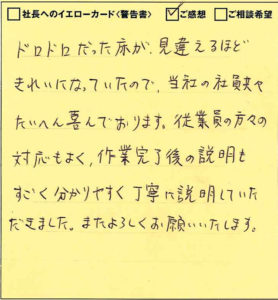 □社長へのイエローカード〈警告書〉 ☑ご感想 □ご相談希望
ドロドロだった床が、見違えるほど
きれいになっていたので、当社の社員共々
たいへん喜んでおります。従業員の方々の
対応もよく、作業完了後の説明も
すごく分かりやすく丁寧に説明していた
だきました。またよろしくお願いいたします。